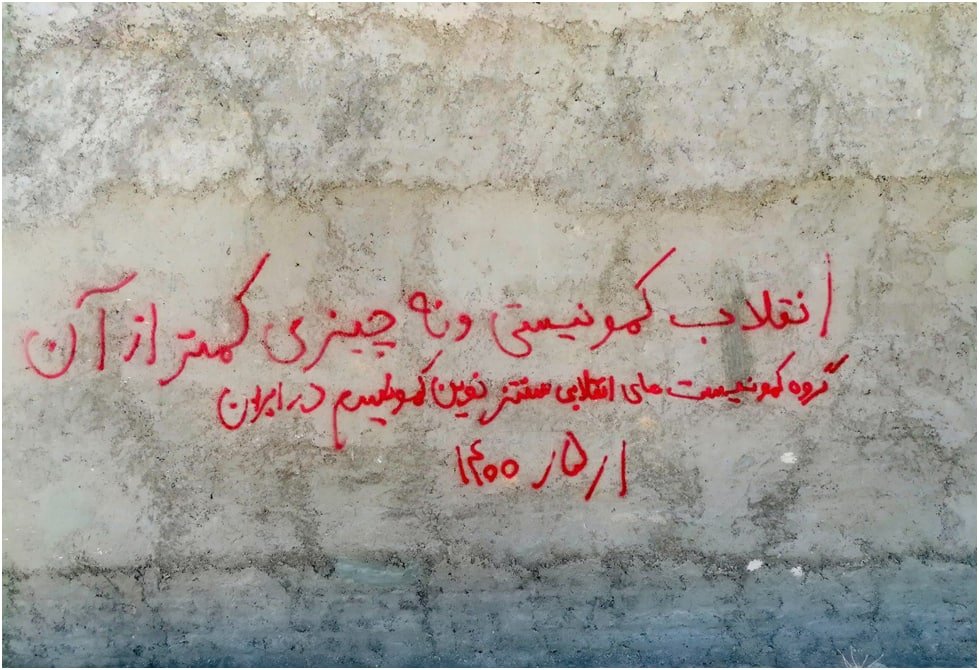 انقلاب کمونیستی و نه چیزی کمتر از آن
گروه کمونیست های انقلابی سنتز نوین کمونیسم در ایران
۱ / ۵ / ۱۴۰۰